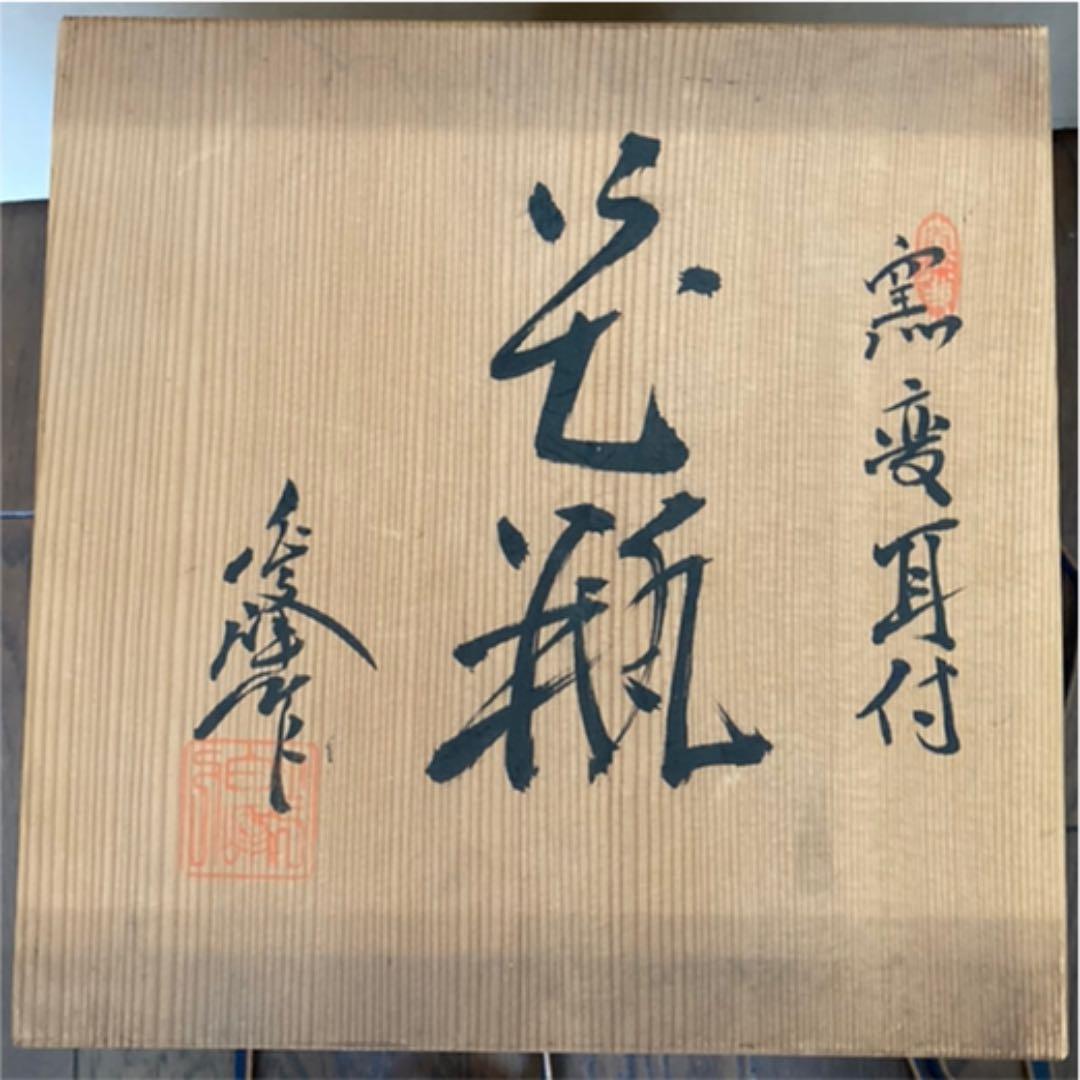 窯変耳付
花瓶
俊峰作